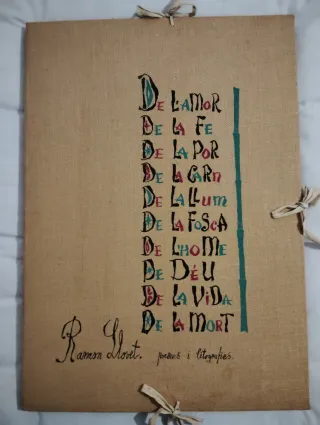 De L'AMOR
De LA Fe
De LA POR
De LA CARn
De LA LLum
De LA FOSCA
De L'hOMe
De DÉU
De LA ViDA
De LA MORT
Ramon Llovet. poemes i litografies.